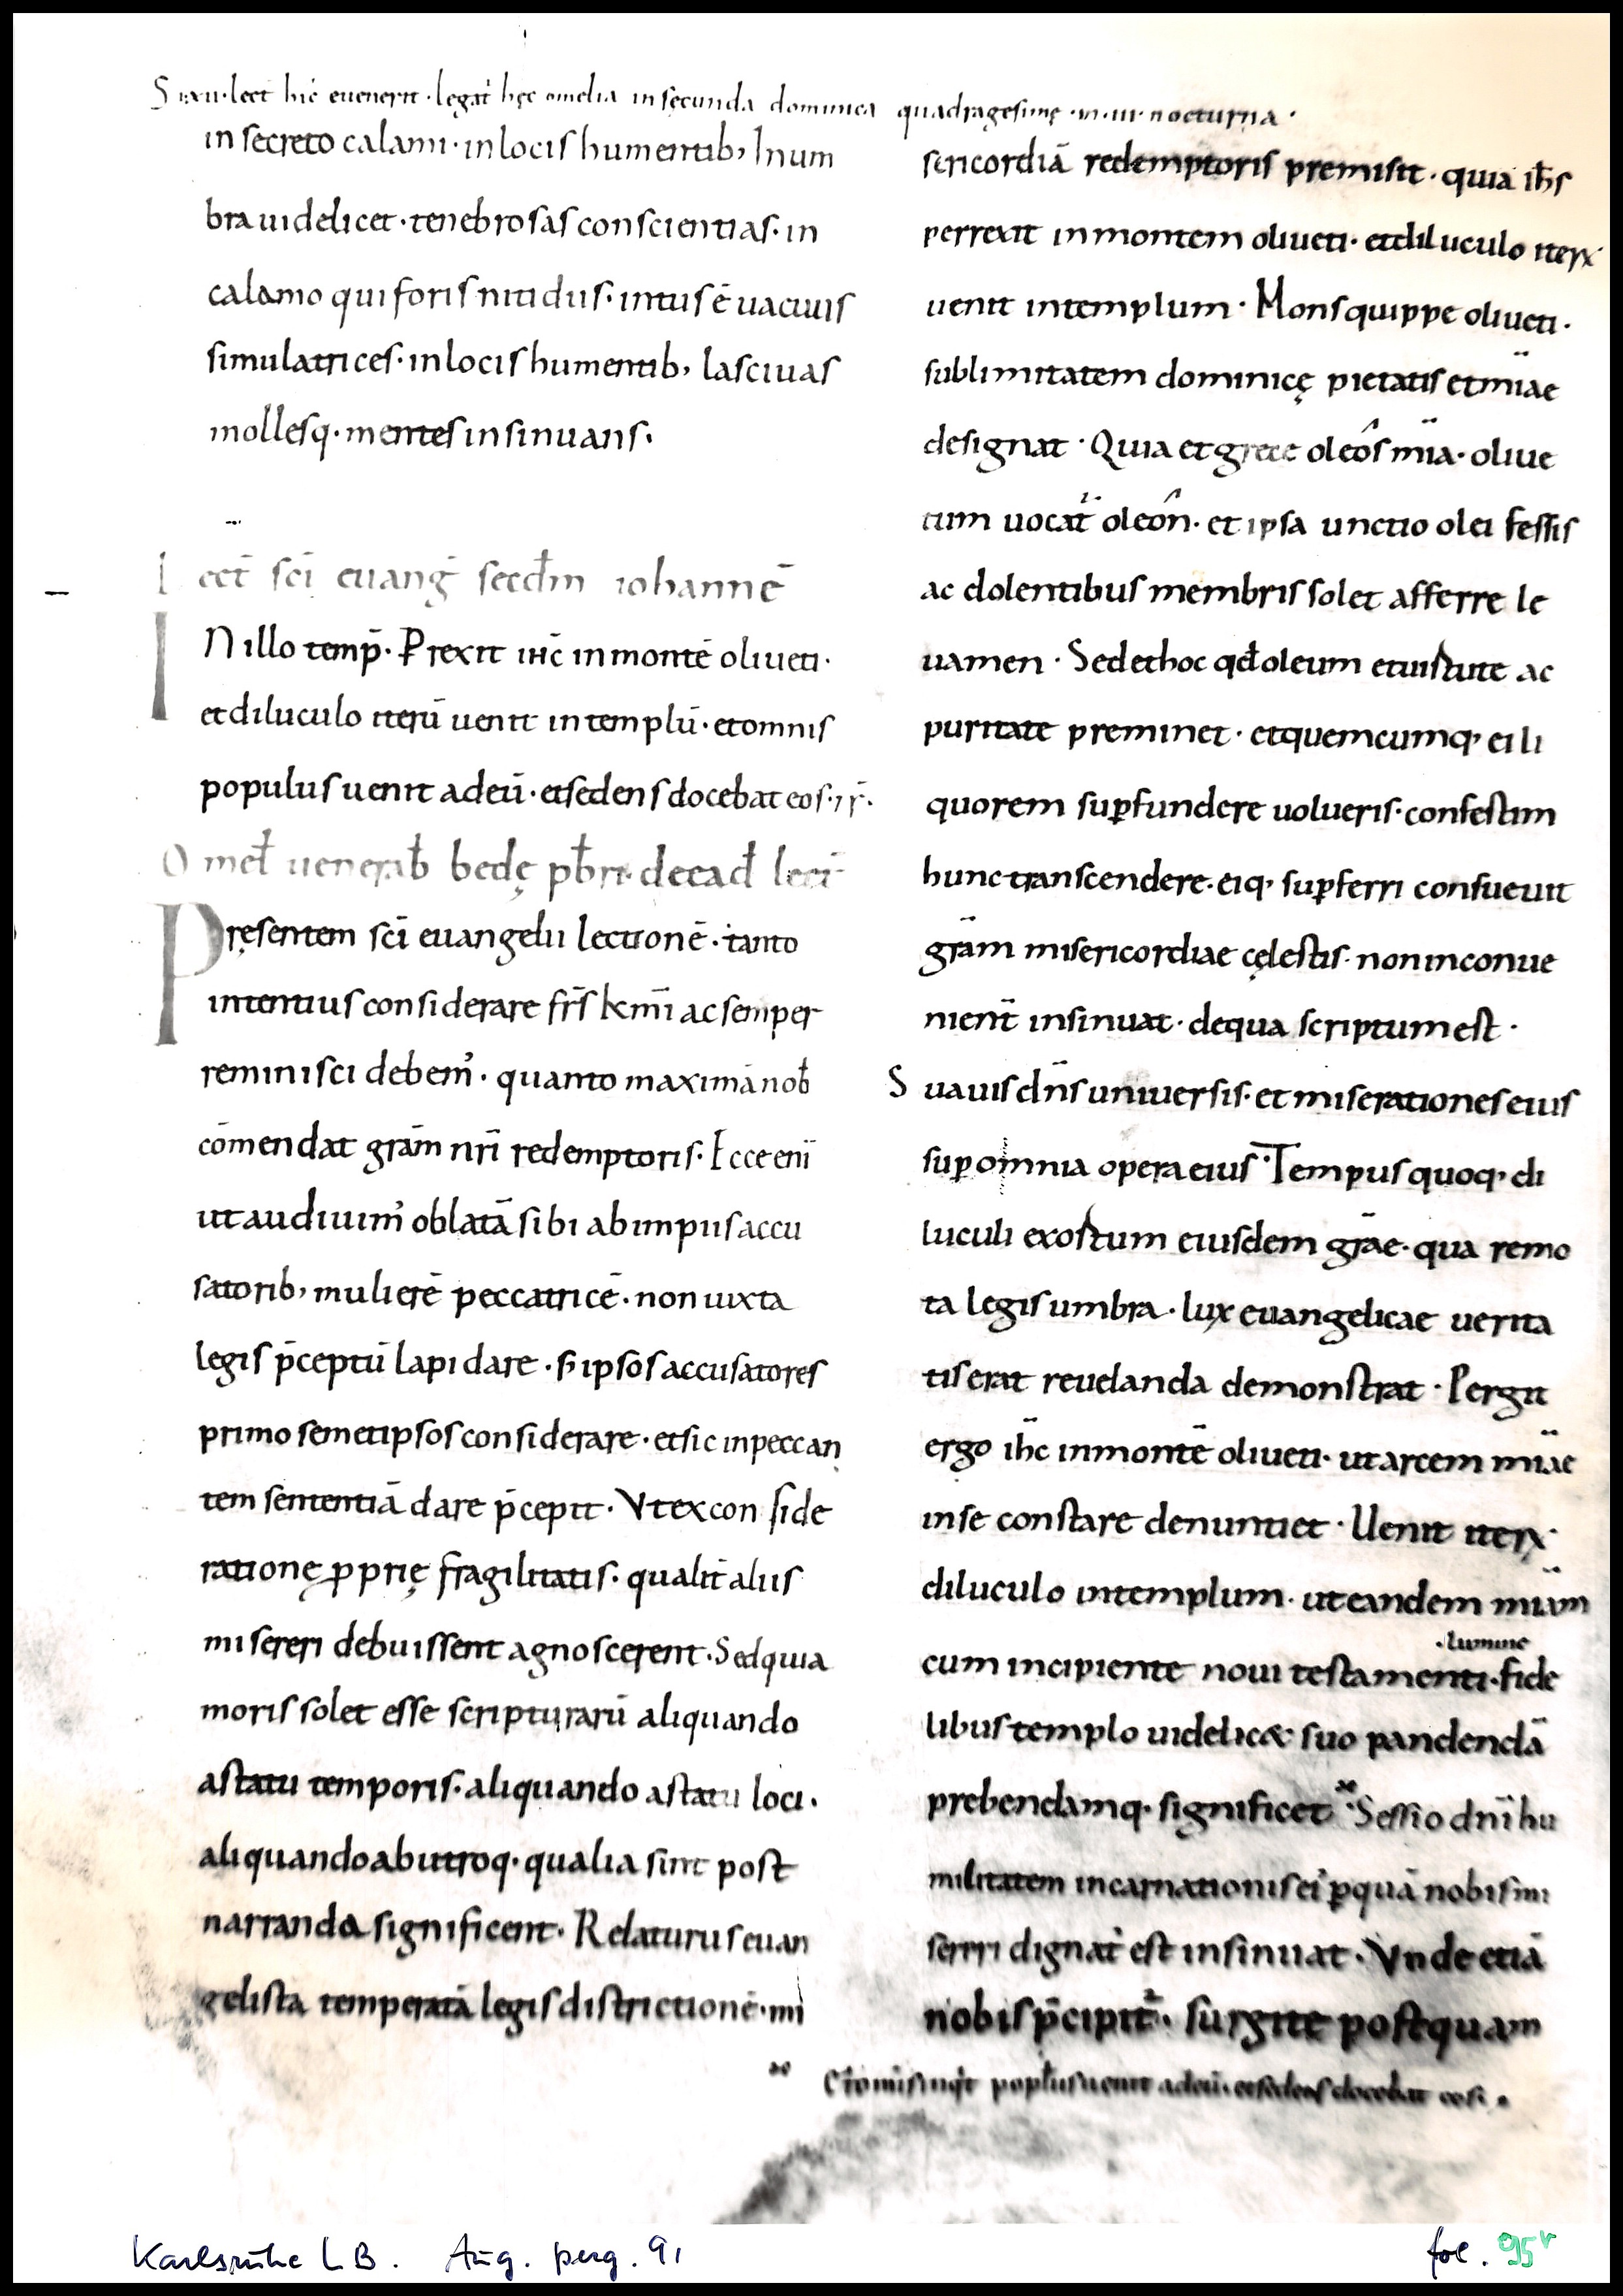 Si xii lect hic euenerit · legat̄ hęc omelia in secunda dominica quadragesimę · in · iii · nocturna ·
in secreto calami · in locis humentib; In um
bra uidelicet · tenebrosas conscientias · in
calamo qui foris nitidus · intus ē uacuus
simulatrices · in locis humentib; lasciuas
mollesq· mentes insinuans ·
Lect̄ sc̄i euanḡ secd̄m iohannē
IN illo temp̄ · P̲rexit ih̄c in montē oliueti ·
et diluculo iterū uenit in templū · et omnis
populus uenit ad eū · et sedens docebat eos · ⁊ r̄ ·
Omel̄ uenerab̄ bedę pb̄ri · de ead̄ lect̄
Pręsentem sc̄i euangelii lectionē · tanto
intentius considerare fr̄s km̄i ac semper
reminisci debem᾽ · quanto maximā nob̄
cōmendat grām nr̄i redemptoris · Ecce enī
ut audiuim᾽ oblatā sibi ab impiis accu
satorib; mulierē peccatricē · non iuxta
legis p̄ceptū lapidare · s; ipsos accusatores
primo semetipsos considerare · et sic in peccan
tem sententiā dare p̄cepit · Vt ex con side
rationę ꝓprię fragilitatis · qualit̄ aliis
misereri debuissent agnoscerent · Sed quia
moris solet esse scripturarū aliquando
a statu temporis · aliquando a statu loci ·
aliquando ab utroq· qualia sint post
narranda significent · Relaturus euan
gelista temperatā legis districtionē · mi
sericordiā redemptoris premisit · quia ih̄s
perrexit in montem oliueti · et diluculo iteꝝ
uenit in templum · Mons quippe oliueti ·
sublimitatem dominicę pietatis et mīae
designat · Quia et grece oleôs mīa · oliue
tum uocat̄ oleôn · et ipsa unctio olei fessis
ac dolentibus membris solet afferre le
uamen · Sed et hoc qd̄ oleum et uirtute ac
puritate preminet · et quemcumq· ei li
quorem suꝑfundere uolueris · confestim
hunc transcendere · eiq· suꝑferri consueuit
grām misericordiae cęlestis · non inconue
nient̄ insinuat · de qua scriptum est ·
Suauis dn̄s uniuersis · et miserationes eius
suꝑ omnia opera eius · Tempus quoq· di
luculi exortum eiusdem grāe · qua remo
ta legis umbra · lux euangelicae uerita
tis erat reuelanda demonstrat · Pergit
ergo ih̄c in montē oliueti · ut arcem mīae
in se constare denuntiet · Uenit iteꝝ
diluculo in templum · ut eandem mīam
· lumine
cum incipiente noui testamenti · fide
libus templo uidelic& suo pandendā
prebendamq· significet · Sessio dn̄i hu
militatem incarnationis ei᾽ ꝑ quā nobis mi
sereri dignat̄ est insinuat · Vnde etiā
nobis p̄cipit̄ · surgite postquam
Et om̄is inqt̄ popl̄us uenit ad eū · et sedens docebat eos ·
Karlsruhe LB. Aug. perg. 91
fol. 95r